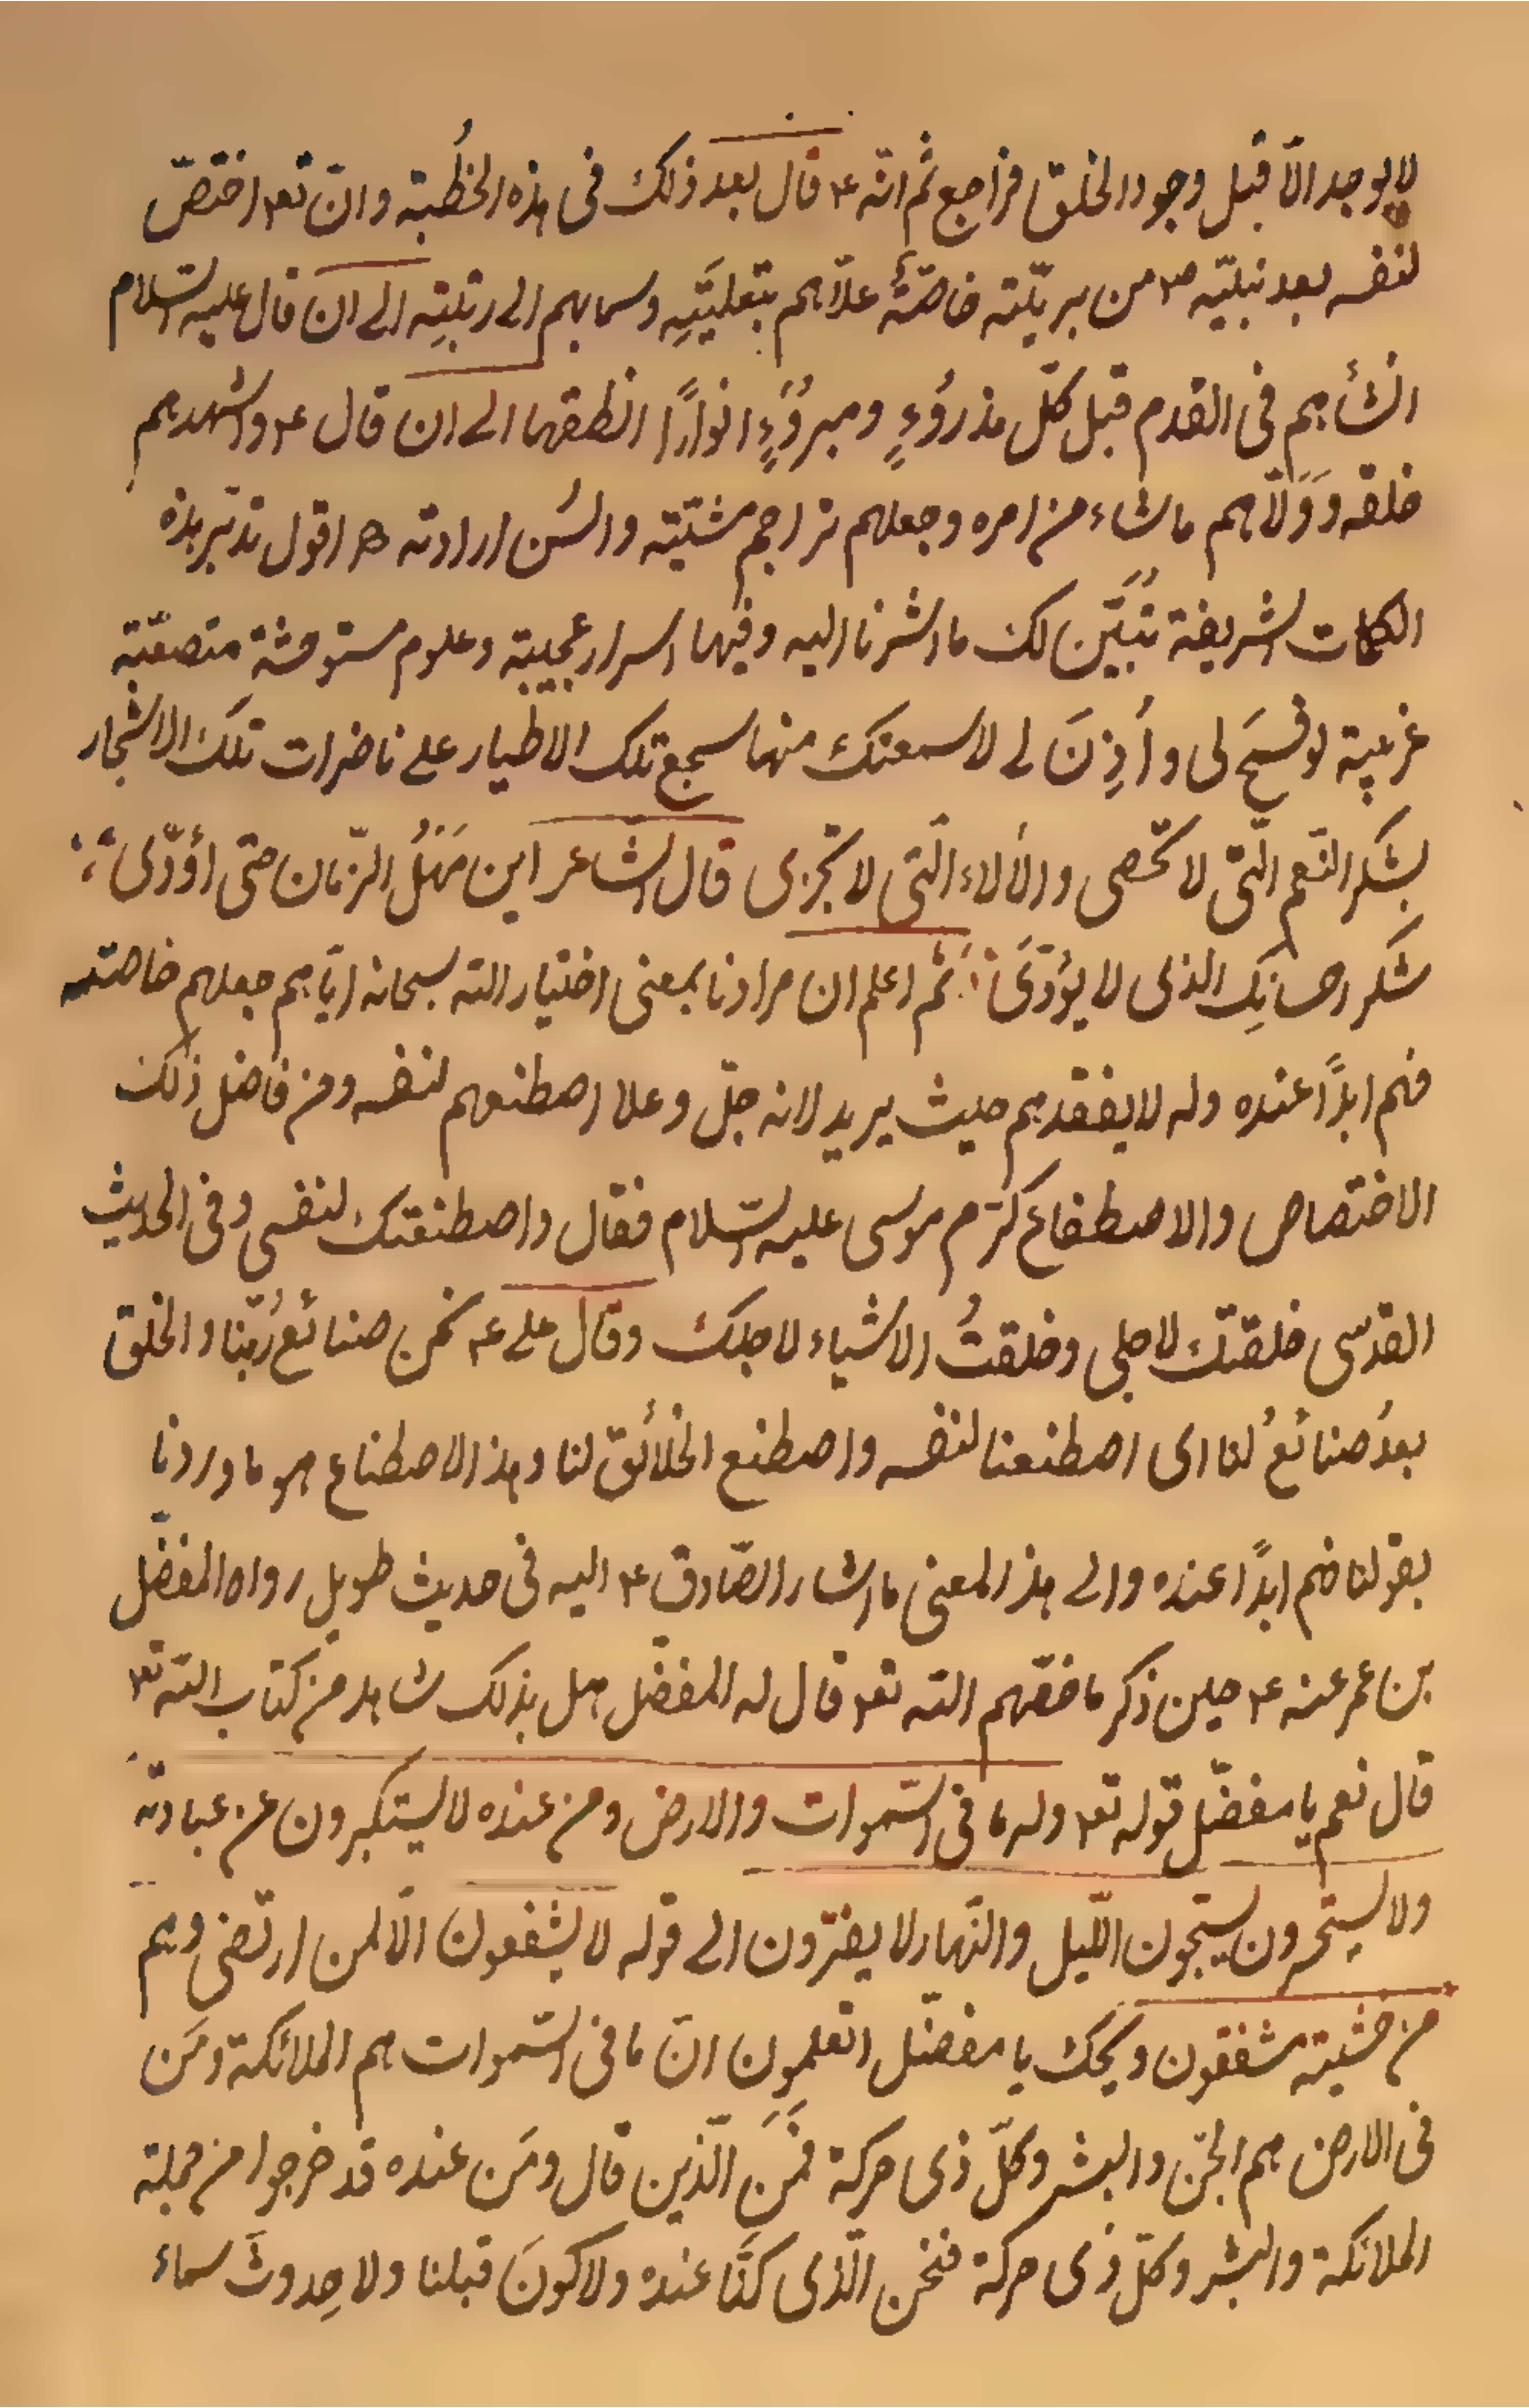 لا يوجد الّا قبل وجود الخلق فراجع ثم انّه ع قال بعد ذلك فى هذه الخُطبة وانّ تعم اختصّ
لنفسه بعد نبيّه ص من بريّته خاصّةً علّاهم بتعليَتِهِ وسما بهم الى رتبتِه الى ان قال عليه السلام
انشأهم فى القدم قبل كلّ مذروُءٍ ومبروُءٍ انوارًا انطقها الى ان قال ع واشهدهم
خلقه وَوَلّاهم ما شاء من امره وجعلهم تراجم مشيّته والسُن ارادته اقول تدبّر هذه
الكلمات الشريفة تُبَيَّن لك ما اشرنا اليه وفيها اسرار عجيبة وعلوم مستوحشة متصعّبة
غريبة لو فُسِحَ لى واُذِنَ لى لاسمعتك منها سجع تلك الاطيار على ناضرات تلك الاشجار
بشكر النّعم الّتى لا تحصى والألاء الّتى لا تجزى قال الشاعر اين مَهَلُ الزّمان حتى اؤدّى
شكر احسانِك الذى لا يؤدّى ثم اعلم ان مرادنا بمعنى اختيار الله سبحانه ايّاهم جعلهم خاصته
فهم ابدًا عنده وله لا يفقدهم حيث يريد لانه جلّ وعلا اصطنعهم لنفسه ومن فاضل ذلك
الاختصاص والاصطفاع كرّم موسى عليه السّلام فقال واصطنعتك لنفسى وفى الحديث
القدسى خلقتك لاجلى وخلقتُ الاشياء لاجلك وقال على ع نحن صنائعُ ربّنا والخلق
بعدُ صنائعُ لنا اى اصطنعنا لنفسه واصطنع الخلائق لنا وهذا الاصطناع هو ما اوردنا
بقولنا فهم ابدًا عنده والى هذا المعنى ما اشار الصّادق ع اليه فى حديث طويل رواه المفضّل
بن عمر عنه ع حين ذكر ما خصّهم الله تعم قال له المفضّل هل بذلك شاهد من كتاب الله تعم
قال نعم يا مفضّل قوله تعم وله ما فى السّموات والارض ومن عنده لا يستكبرون عن عبادته
ولا يستحسرون يسبّحون اللّيل والنّهار لا يفترون الى قوله لا يشفعون الّا لمن ارتضى وهم
من خشيته مشفقون ويحك يا مفضّل اتعلمون انّ ما فى السّموات هم الملائكة ومَن
فى الارض هم الجنّ والبشر وكلّ ذى حركة فمَنِ الّذين قال ومَن عنده قد خرجوا من جملة
الملائكة والبشر وكلّ ذى حركة فنحن الّذى كنّا عنده ولا كونَ قبلنا ولا حدوثَ سماء